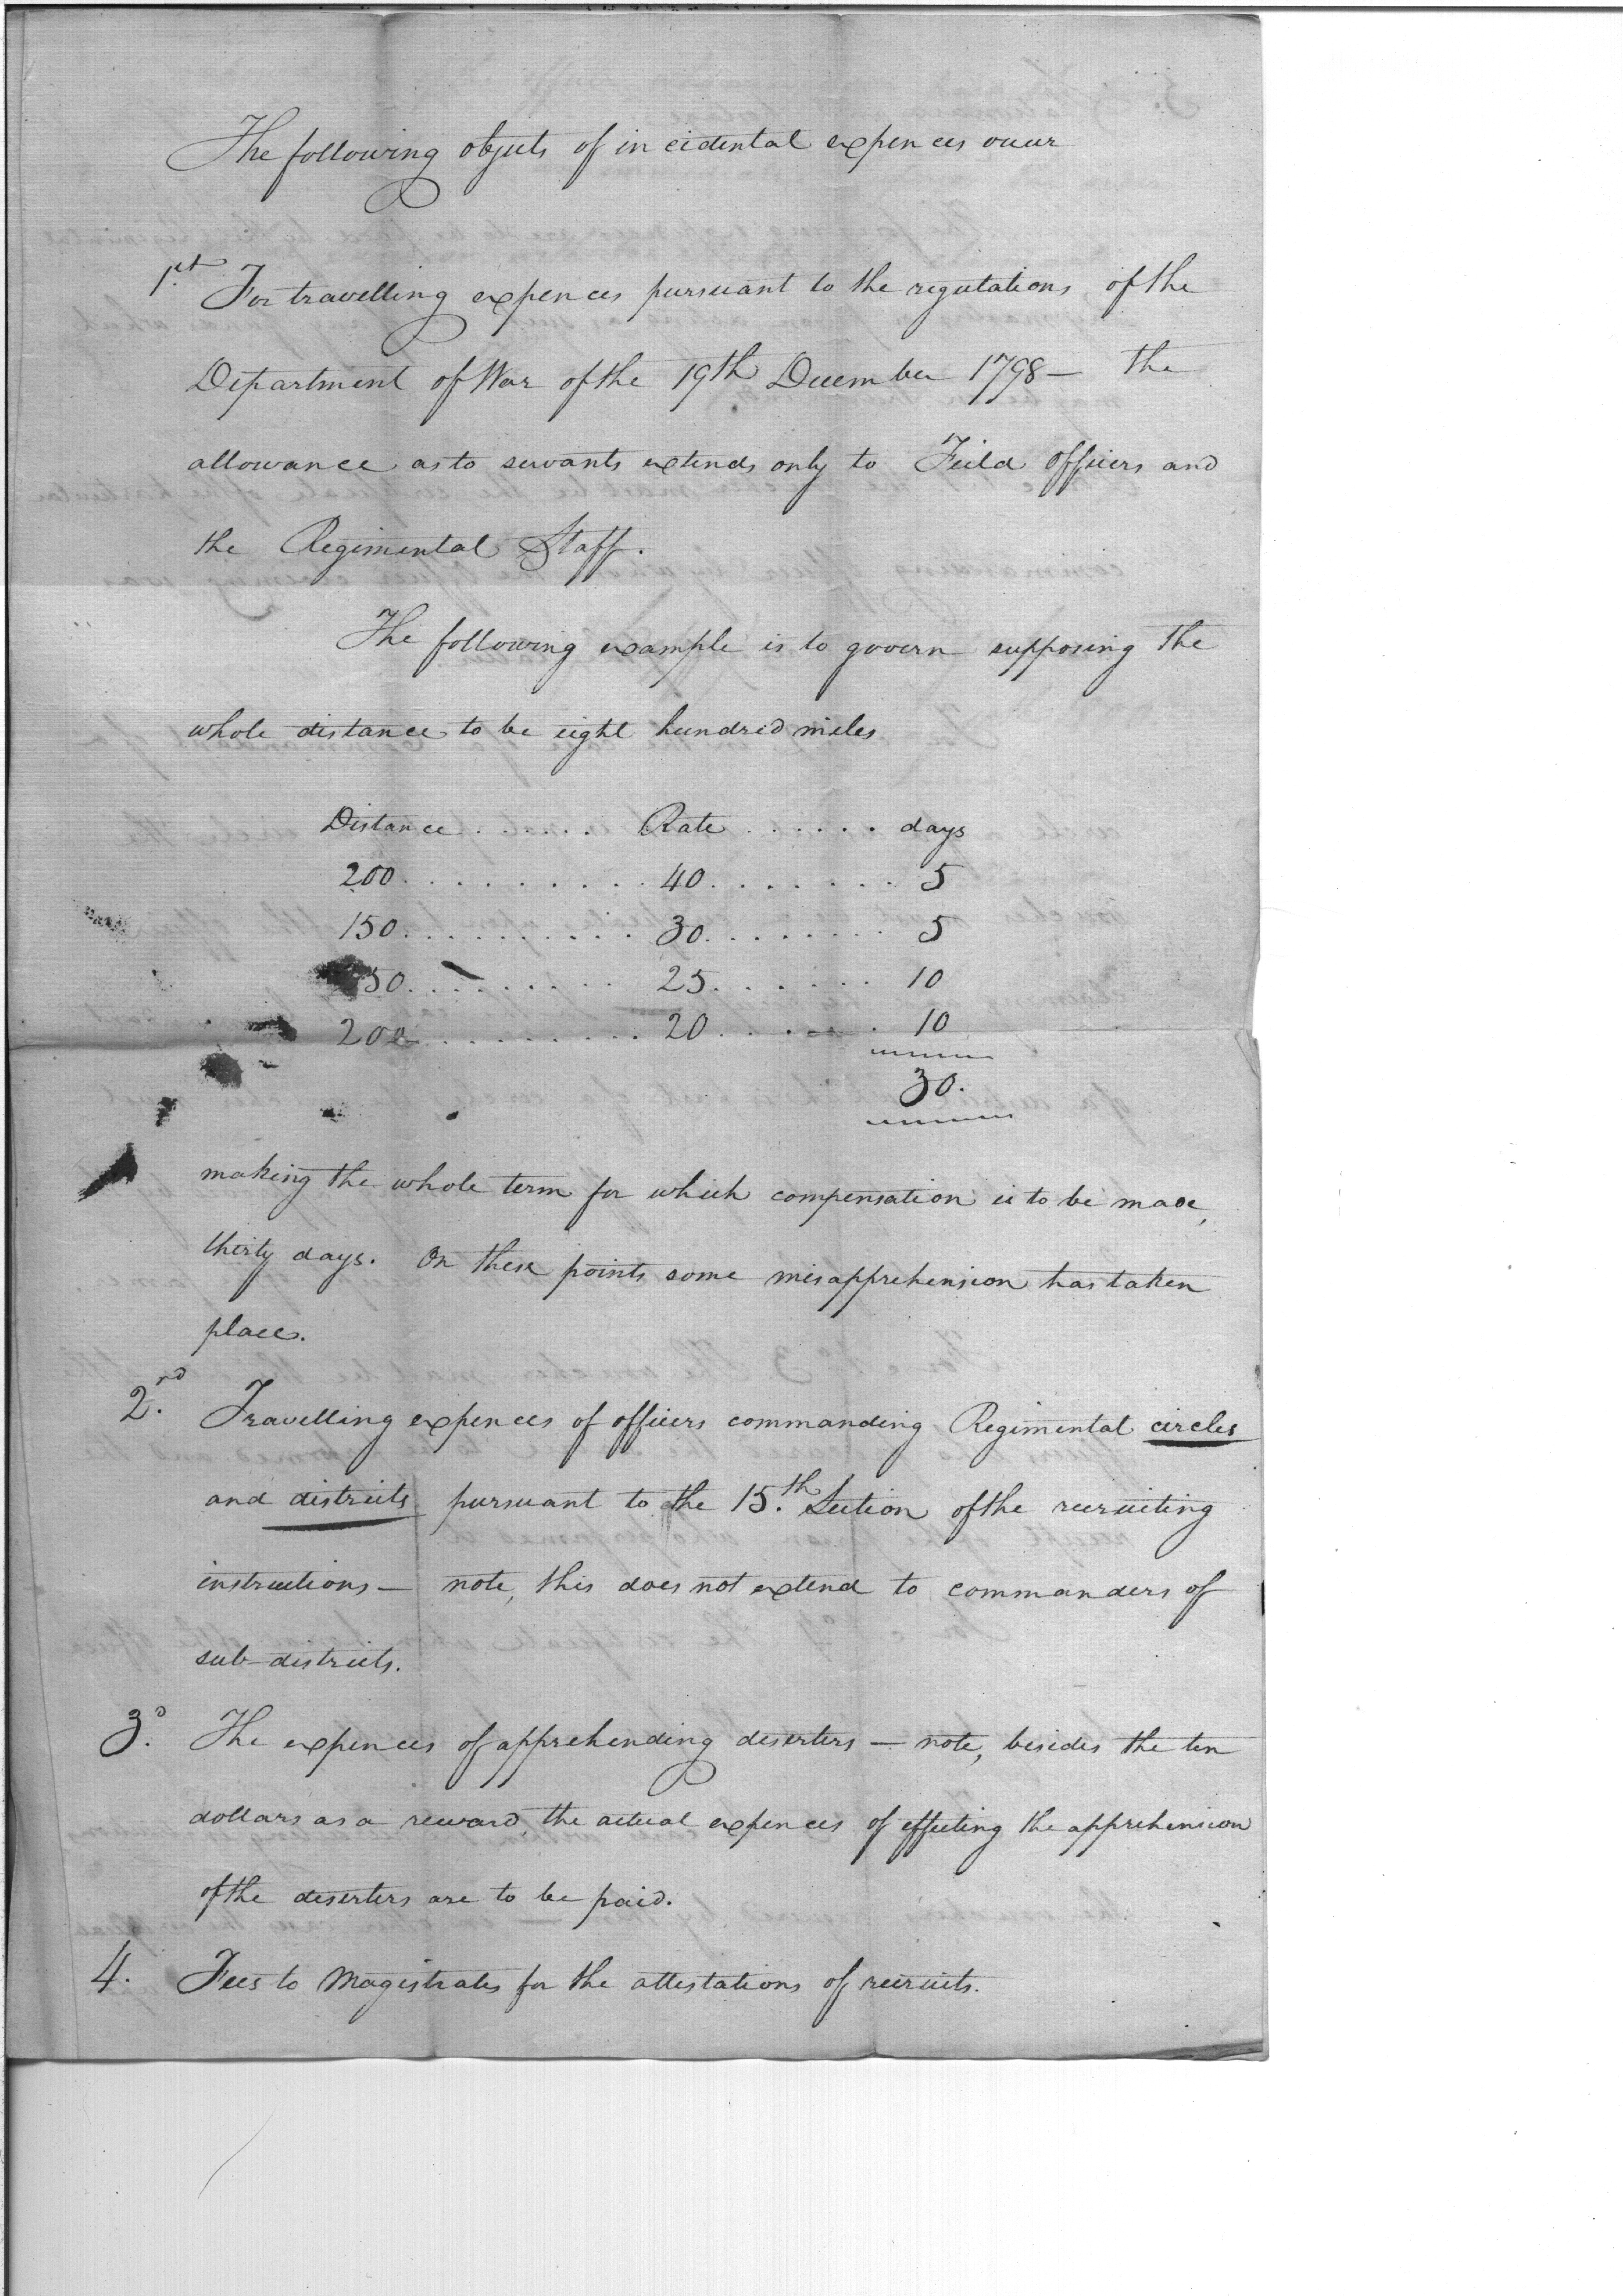 The following objects of incidental expences occur
1st. For travelling expences pursuant to the regulations of the
Department of War of the 19th December 1798 — the
allowance as to servants extends only to Feild officers and
the Regimental Staff.
The following example is to govern supposing the
whole distance to be eight hundred miles
Distance . . . . . . Rate . . . . . . days
200 . . . . . . . . . . 40 . . . . . . . . 5
150 . . . . . . . . . . 30 . . . . . . . . 5
50 . . . . . . . . . 25 . . . . . . . 10
200 . . . . . . . . . 20 . . . . . . 10
30.
making the whole term for which compensation is to be made,
thirty days. On these points some misapprehension has taken
place.
2.nd Travelling expences of officers commanding Regimental circles
and districts pursuant to the 15.th Section of the recruiting
instructions — note, this does not extend to commanders of
sub-districts.
3.d The expences of apprehending deserters — note, besides the ten
dollars as a reward, the actual expences of effecting the apprehension
of the deserters are to be paid.
4. Fees to Magistrates for the attestations of recruits.